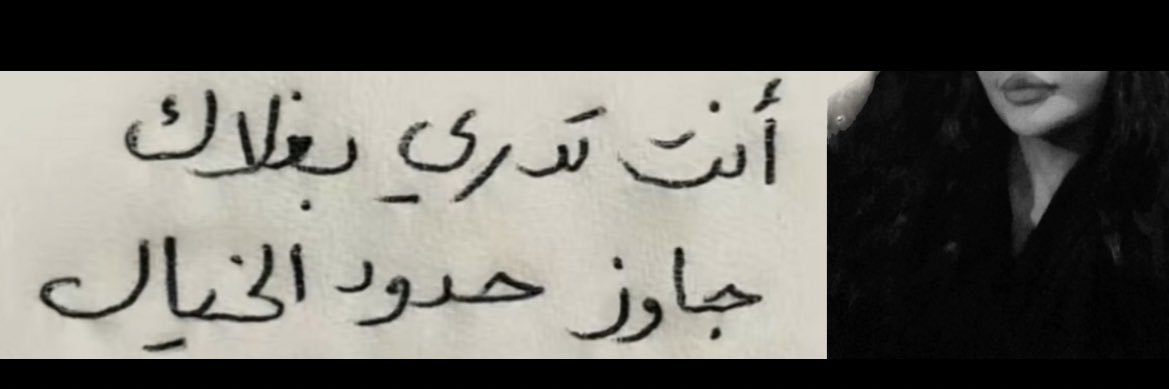 أنت تدري بغلاك
جاوز حدود الخيال